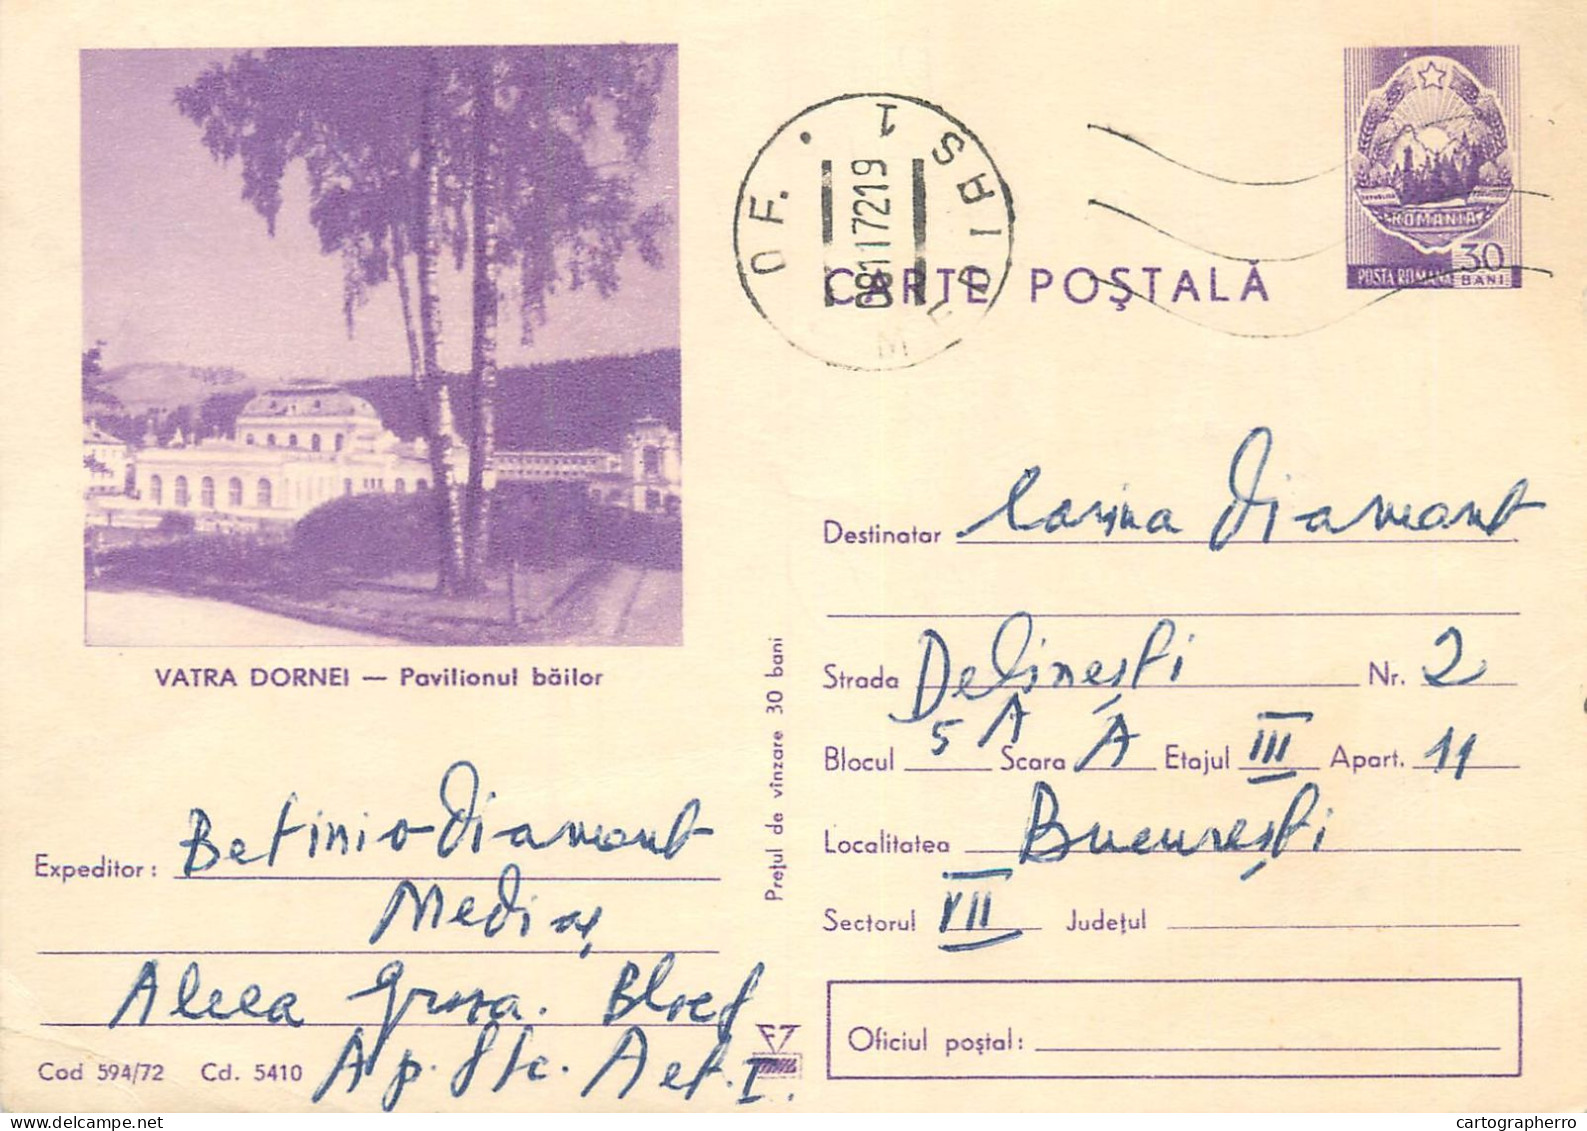 OF. MEDIAS 1
08 11 72 19
ROMANIA
30
POSTA ROMANA BANI
CARTE POȘTALĂ
VATRA DORNEI — Pavilionul băilor
Destinatar Carina Diamant
Strada Delinești Nr. 2
Blocul 5A Scara A Etajul III Apart. 11
Localitatea București
Sectorul VII Județul
Oficiul poștal:
Prețul de vînzare 30 bani
Expeditor: Betinio Diamant
Mediaș
Aleea Bloc
Ap. Sc. A et. I.
Cod 594/72 Cd. 5410
cartographerro
delcampe.net